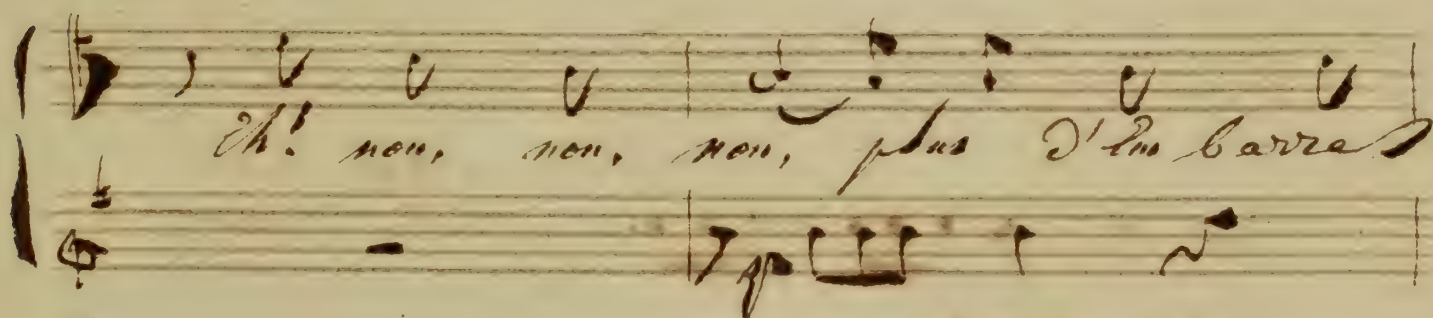 Eh! non, non, non, plus d'embarras
p